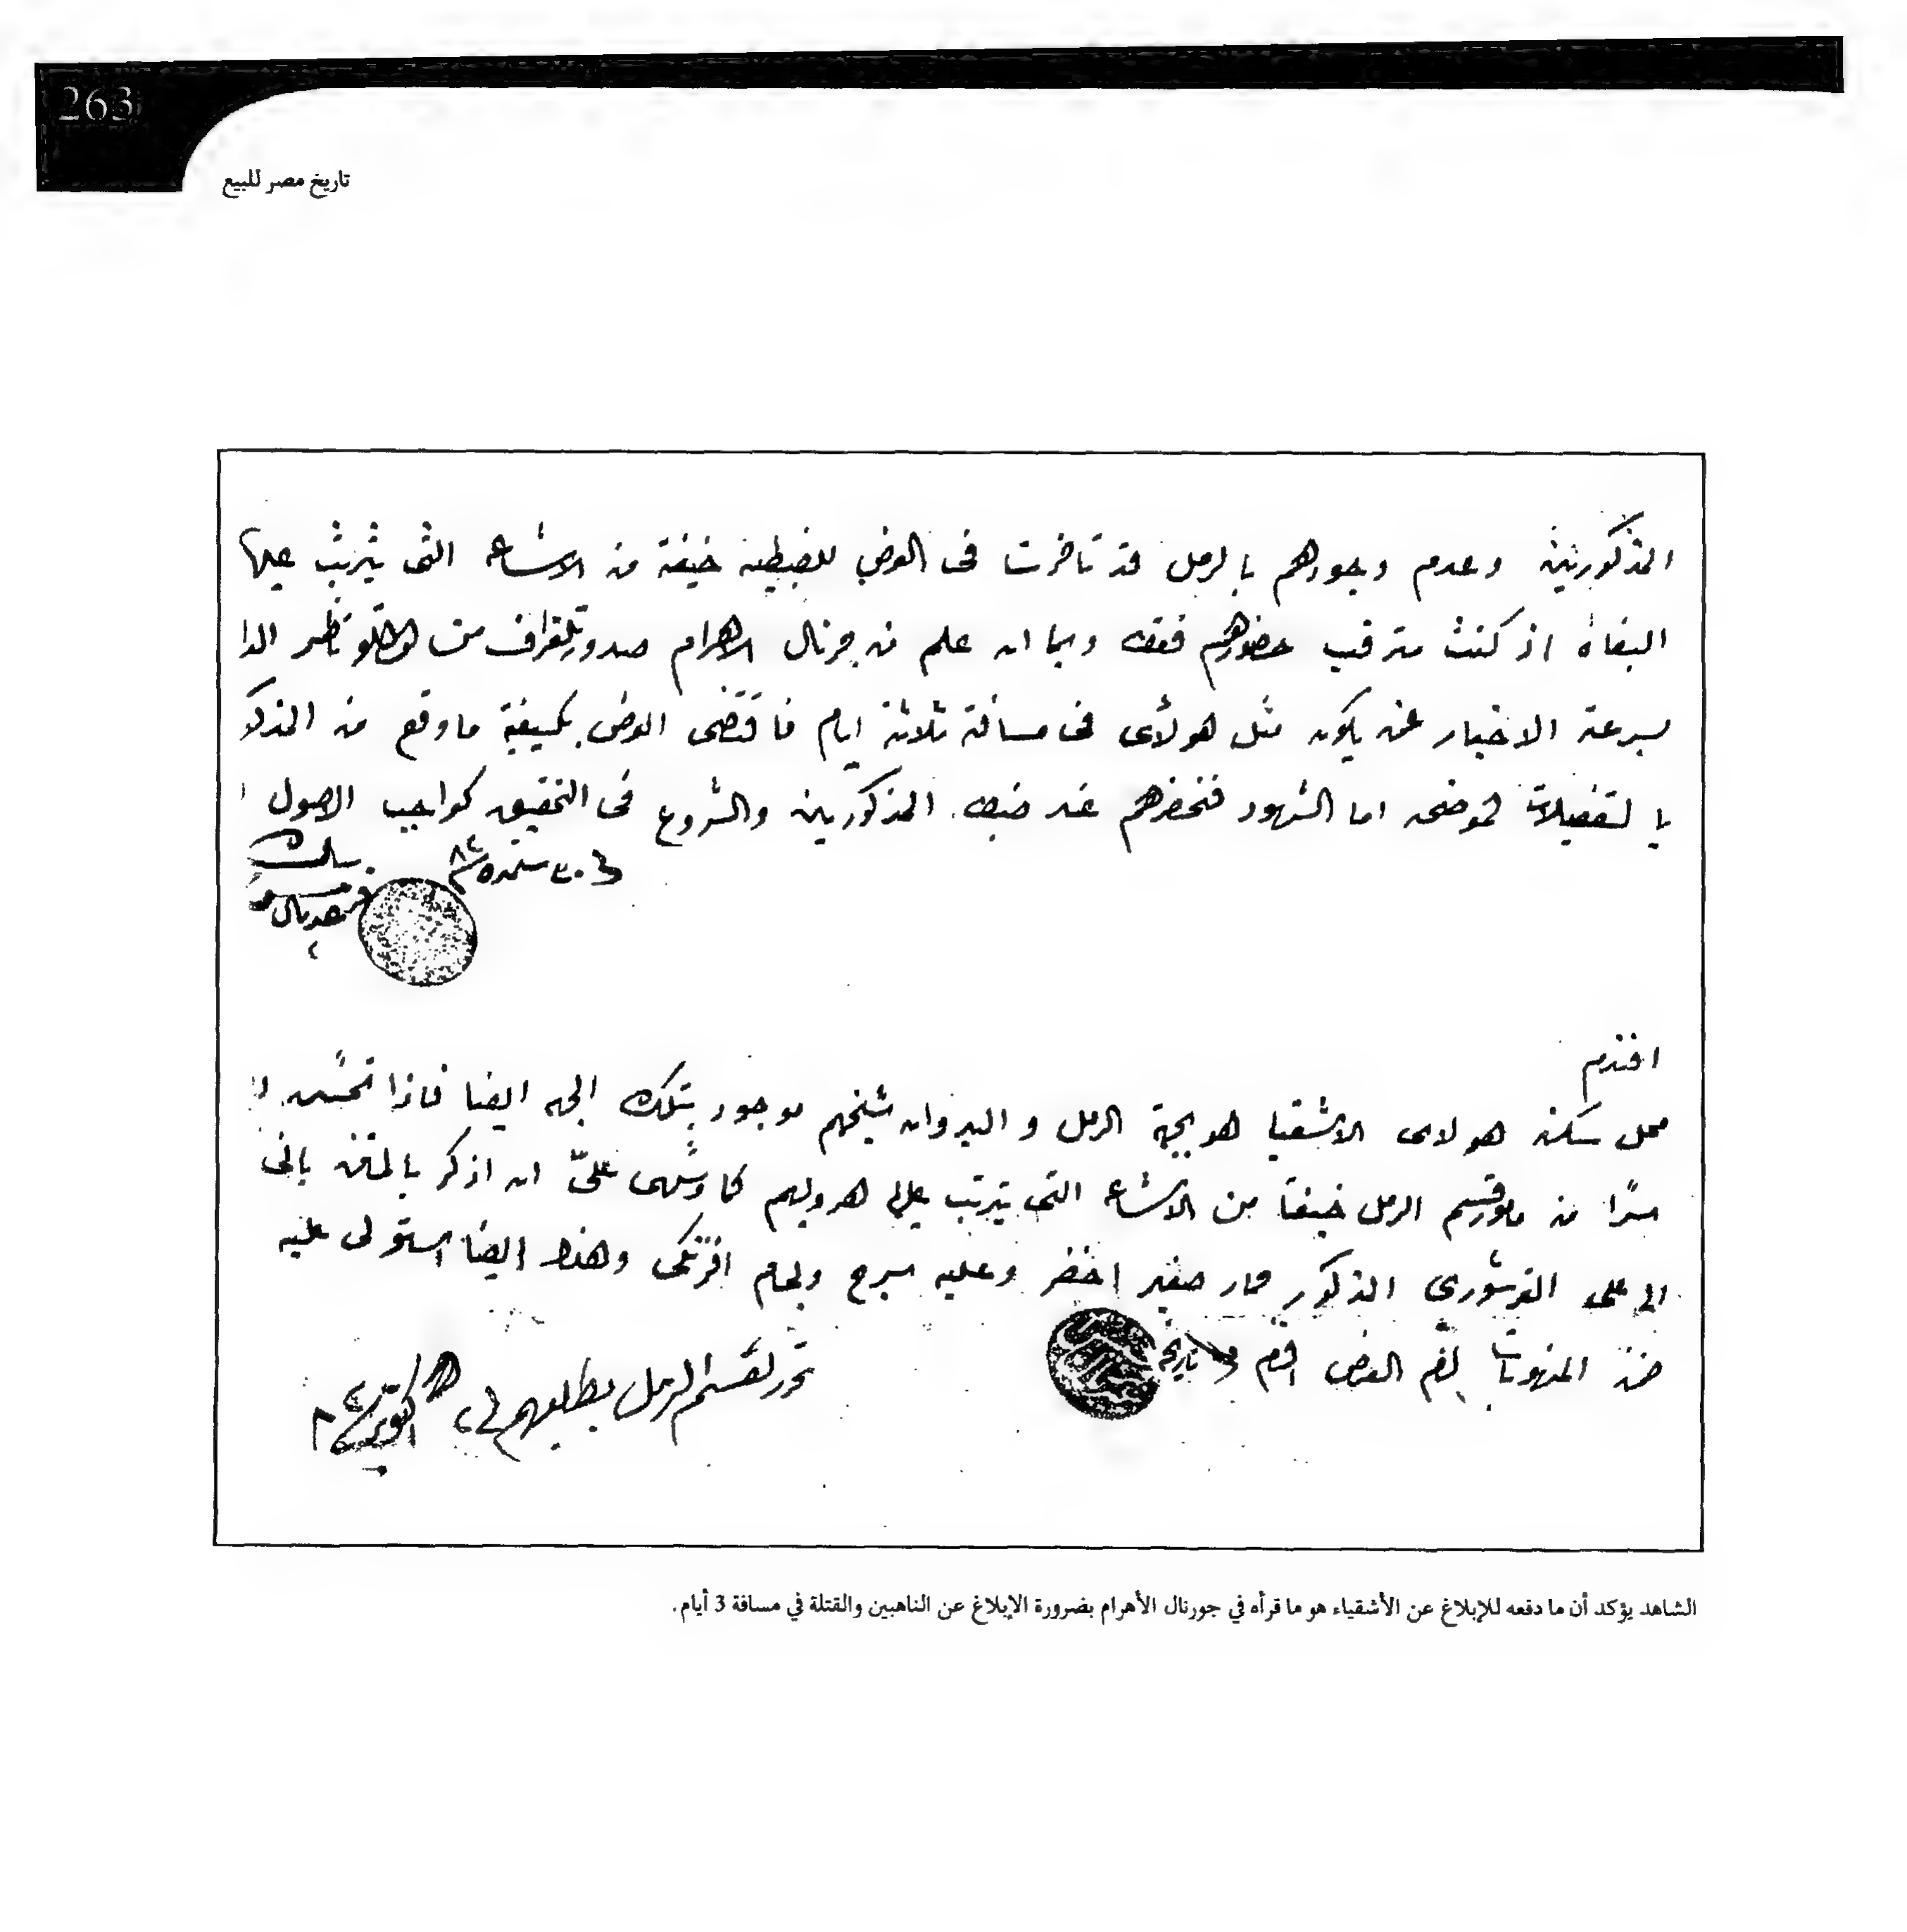 263
تاريخ مصر للبيع
المذكورين وعدم وجودهم بالرمل قد تاخرت فى العرض للضبطيه خيفة من الاشاعه التى يترتب عليها
اذ كنت مترقب حضورهم فقط وبما ان علم من جرنال الاهرام صدور تلغراف من ناظر الدا
بسرعة الاخبار عن يكون مثل هولائى فى مسافة ثلاثة ايام فاقتضى العرض بكيفية ما وقع من المذكو
بالتفصيلات اما الشهود فنحضرهم عند ضبط المذكورين والشروع فى التحقيق كواجب الاصول
٣٠ سنه ٨٢
افندم
محل سكن هولاى الاشقيا هو بجهة الرمل و شيخهم موجود بتلك الجهه ايضا فاذا
سرًا من قسم الرمل خيفتا من الاشاعه التى يترتب على هروبهم كما علىّ ان اذكر بانى
المذكور حمار صغير اخضر وعليه سرج ولجام افرنكى وهذا ايضا استولى عليه
ضمن المنهوبات لزم العرض افندم تاريخه
تحرر لقسم الرمل بطلبهم فى اكتوبر سنة ٨٢
الشاهد يؤكد أن ما دفعه للإبلاغ عن الأشقياء هو ما قرأه في جورنال الأهرام بضرورة الإبلاغ عن الناهبين والقتلة في مسافة 3 أيام.